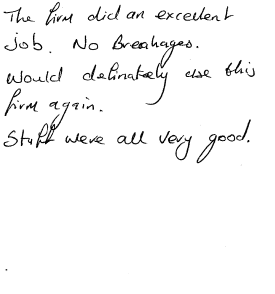 The firm did an excellent
job. No Breakages.
Would definately use this
firm again.
Staff were all very good.